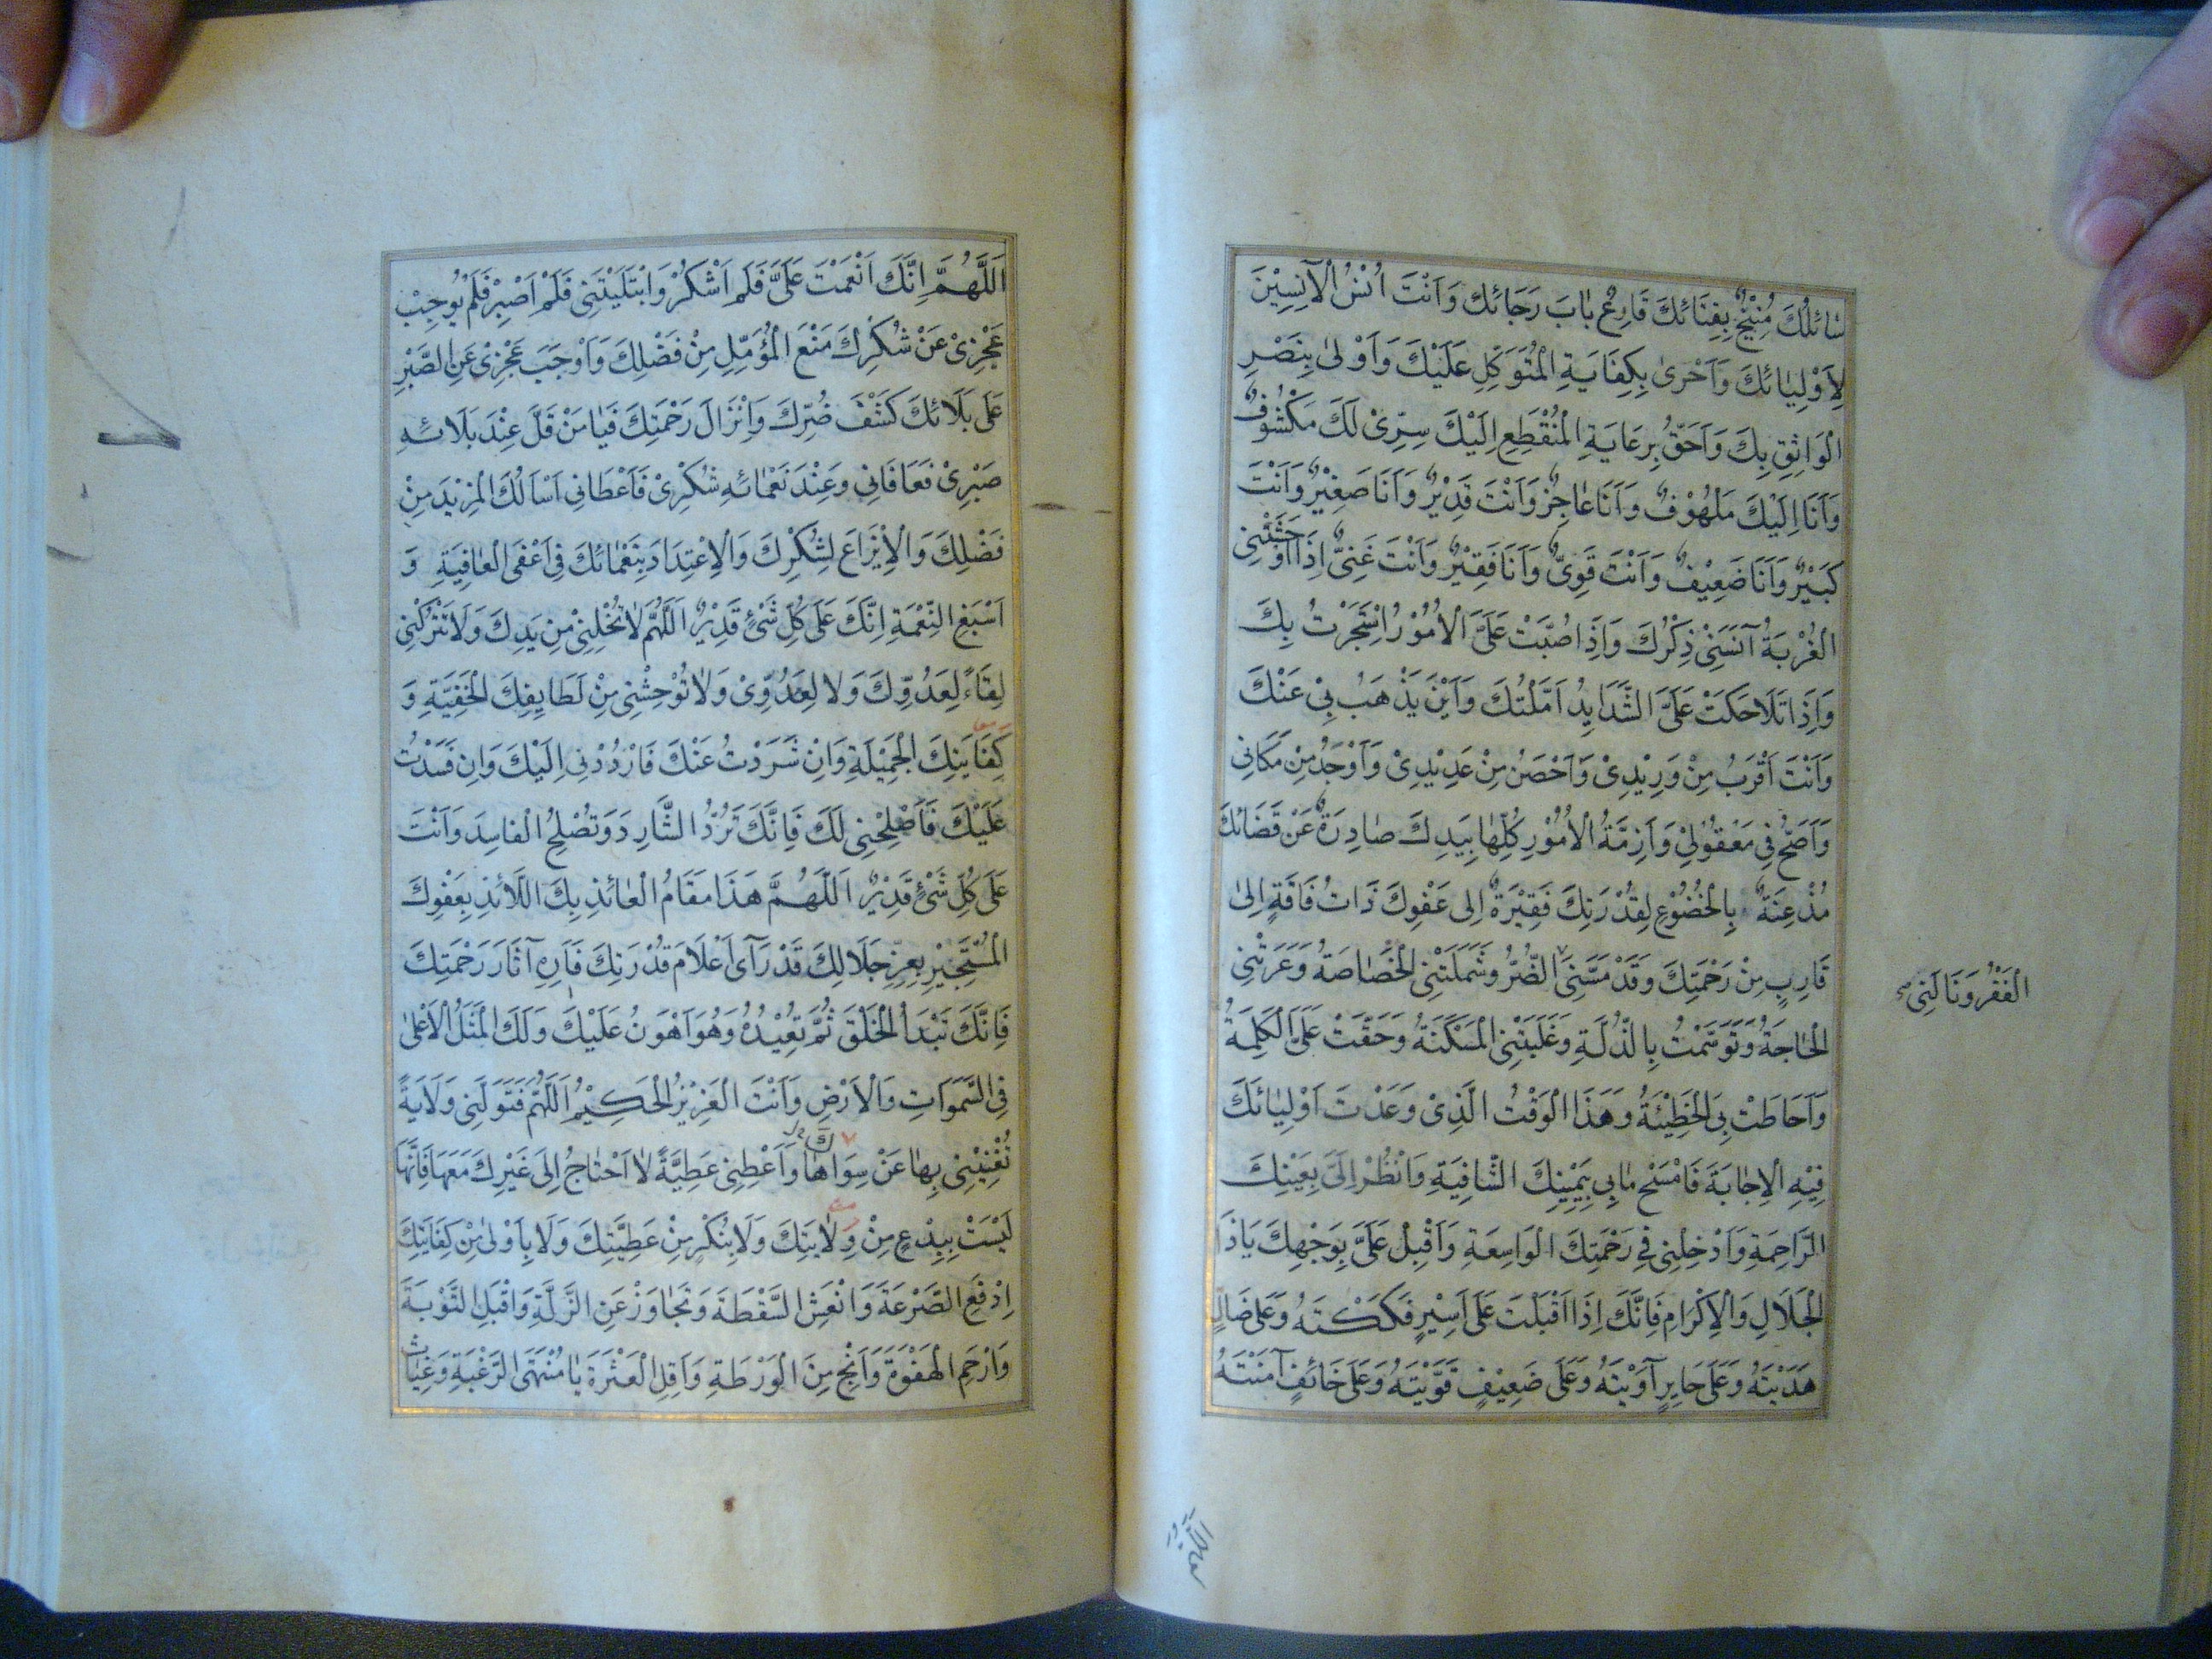 سَائِلُكَ مُنِيْخٌ بِفِنَائِكَ قَارِعُ بَابَ رَجَائِكَ وَاَنْتَ اُنْسُ الْآنِسِيْنَ
لِاَوْلِيَائِكَ وَاَحْرىٰ بِكِفَايَةِ الْمُتَوَكِّلِ عَلَيْكَ وَاَوْلىٰ بِنَصْرِ
الْوَاثِقِ بِكَ وَاَحَقُّ بِرِعَايَةِ الْمُنْقَطِعِ اِلَيْكَ سِرِّىْ لَكَ مَكْشُوفٌ
وَاَنَا اِلَيْكَ مَلْهُوْفٌ وَاَنَا عَاجِزٌ وَاَنْتَ قَدِيْرٌ وَاَنَا صَغِيْرٌ وَاَنْتَ
كَبِيْرٌ وَاَنَا ضَعِيْفٌ وَاَنْتَ قَوِىٌّ وَاَنَا فَقِيْرٌ وَاَنْتَ غَنِىٌّ اِذَا اَوْحَشَتْنِى
الْغُرْبَةُ آنَسَنِىْ ذِكْرُكَ وَاِذَا صُبَّتْ عَلَىَّ الْاُمُوْرُ اسْتَجَرْتُ بِكَ
وَاِذَا تَلَاحَكَتْ عَلَىَّ الشَّدَايِدُ اَمَّلْتُكَ وَاَيْنَ يَذْهَبُ بِىْ عَنْكَ
وَاَنْتَ اَقْرَبُ مِنْ وَرِيْدِىْ وَاَحْصَنُ مِنْ عَدِيْدِىْ وَاَوْجَدُ مِنْ مَكَانِى
وَاَصَحُّ فِى مَعْقُوْلِىْ وَاَزِمَّةُ الْاُمُوْرِ كُلِّهَا بِيَدِكَ صَادِرَةٌ عَنْ قَضَائِكَ
مُذْعِنَةٌ بِالْخُضُوْعِ لِقُدْرَتِكَ فَقِيْرَةٌ اِلى عَفْوِكَ ذَاتُ فَاقَةٍ اِلىٰ
قَارِبٍ مِنْ رَحْمَتِكَ وَقَدْ مَسَّنِىَ الضُّرُّ وَشَمَلَتْنِى الْخَصَاصَةُ وَعَرَتْنِى
الْفَقْرُ وَنَالَنِى
الْحَاجَةُ وَتَوَسَّمْتُ بِالذِّلَّةِ وَغَلَبَتْنِى الْمَسْكَنَةُ وَحَقَّتْ عَلَىَّ الْكَلِمَةُ
وَاَحَاطَتْ بِىَ الْخَطِيْئَةُ وَهَذَا الْوَقْتُ الَّذِىْ وَعَدْتَ اَوْلِيَائَكَ
فِيْهِ الْاِجَابَةَ فَامْسَحْ مَا بِى بِيَمِيْنِكَ الشَّافِيَةِ وَانْظُرْ اِلَىَّ بِعَيْنِكَ
الرَّاحِمَةِ وَاَدْخِلْنِى فِى رَحْمَتِكَ الْوَاسِعَةِ وَاَقْبِلْ عَلَىَّ بِوَجْهِكَ يَاذَا
الْجَلَالِ وَالْاِكْرَامِ فَاِنَّكَ اِذَا اَقْبَلْتَ عَلَى اَسِيْرٍ فَكَكْتَهُ وَعَلى ضَالٍّ
هَدَيْتَهُ وَعَلَى حَايِرٍ آوَيْتَهُ وَعَلَى ضَعِيْفٍ قَوَّيْتَهُ وَعَلَى خَائِفٍ آمَنْتَهُ
اَللّٰهُمَّ اِنَّكَ اَنْعَمْتَ عَلَىَّ فَلَمْ اَشْكُرْ وَابْتَلَيْتَنِى فَلَمْ اَصْبِرْ فَلَمْ يُوجِبْ
عَجْزِىْ عَنْ شُكْرِكَ مَنْعَ الْمُؤَمِّلِ مِنْ فَضْلِكَ وَاَوْجَبَ عَجْزِىْ عَنِ الصَّبْرِ
عَلَى بَلَائِكَ كَشْفَ ضُرِّكَ وَاِنْزَالَ رَحْمَتِكَ فَيَا مَنْ قَلَّ عِنْدَ بَلَائِهِ
صَبْرِىْ فَعَافَانِى وَعِنْدَ نَعْمَائِهِ شُكْرِىْ فَاَعْطَانِى اَسْاَلُكَ الْمَزِيْدَ مِنْ
فَضْلِكَ وَالْاِيْزَاعَ لِشُكْرِكَ وَالْاِعْتِدَادَ بِنَعْمَائِكَ فِى اَعْفَى الْعَافِيَةِ وَ
اَسْبَغِ النِّعْمَةِ اِنَّكَ عَلَى كُلِّ شَىْئٍ قَدِيْرٌ اَللّٰهُمَّ لَا تُخْلِنِىْ مِنْ يَدِكَ وَلَا تَتْرُكْنِى
لِقَاءً لِعَدُوِّكَ وَلَا لِعَدُوِّىْ وَلَا تُوْحِشْنِى مِنْ لَطَايِفِكَ الْخَفِيَّةِ وَ
كِفَايَتِكَ الْجَمِيْلَةِ وَاِنْ شَرَدْتُ عَنْكَ فَارْدُدْنِى اِلَيْكَ وَاِنْ فَسَدْتُ
عَلَيْكَ فَاَصْلِحْنِى لَكَ فَاِنَّكَ تَرُدُّ الشَّارِدَ وَتُصْلِحُ الْفَاسِدَ وَاَنْتَ
عَلَى كُلِّ شَىْئٍ قَدِيْرٌ اَللّٰهُمَّ هَذَا مَقَامُ الْعَائِذِ بِكَ اللَّائِذِ بِعَفْوِكَ
الْمُسْتَجِيْرِ بِعِزِّ جَلَالِكَ قَدْ رَآى اَعْلَامَ قُدْرَتِكَ فَاَرِهِ آثَارَ رَحْمَتِكَ
فَاِنَّكَ تَبْدَاُ الْخَلْقَ ثُمَّ تُعِيْدُهُ وَهُوَ اَهْوَنُ عَلَيْكَ وَلَكَ الْمَثَلُ الْاَعْلىٰ
فِى السَّمَوَاتِ وَالْاَرْضِ وَاَنْتَ الْعَزِيْزُ الْحَكِيْمُ اَللّٰهُمَّ فَتَوَلَّنِى وَلَايَةً
تُغْنِيْنِى بِهَا عَنْ سِوَاهَا وَاَعْطِنِى عَطِيَّةً لَا اَحْتَاجُ اِلَى غَيْرِكَ مَعَهَا فَاِنَّهَا
لَيْسَتْ بِبِدْعٍ مِنْ وِلَايَتِكَ وَلَا بِنُكْرٍ مِنْ عَطِيَّتِكَ وَلَا بِاَوْلىٰ مِنْ كِفَايَتِكَ
اِدْفَعِ الصَّرْعَةَ وَانْعَشِ السَّقْطَةَ وَتَجَاوَزْ عَنِ الزَّلَّةِ وَاقْبَلِ التَّوْبَةَ
وَارْحَمِ الْهَفْوَةَ وَاَنْجِ مِنَ الْوَرْطَةِ وَاَقِلِ الْعَثْرَةَ يَا مُنْتَهَى الرَّغْبَةِ وَغِيَاثَ